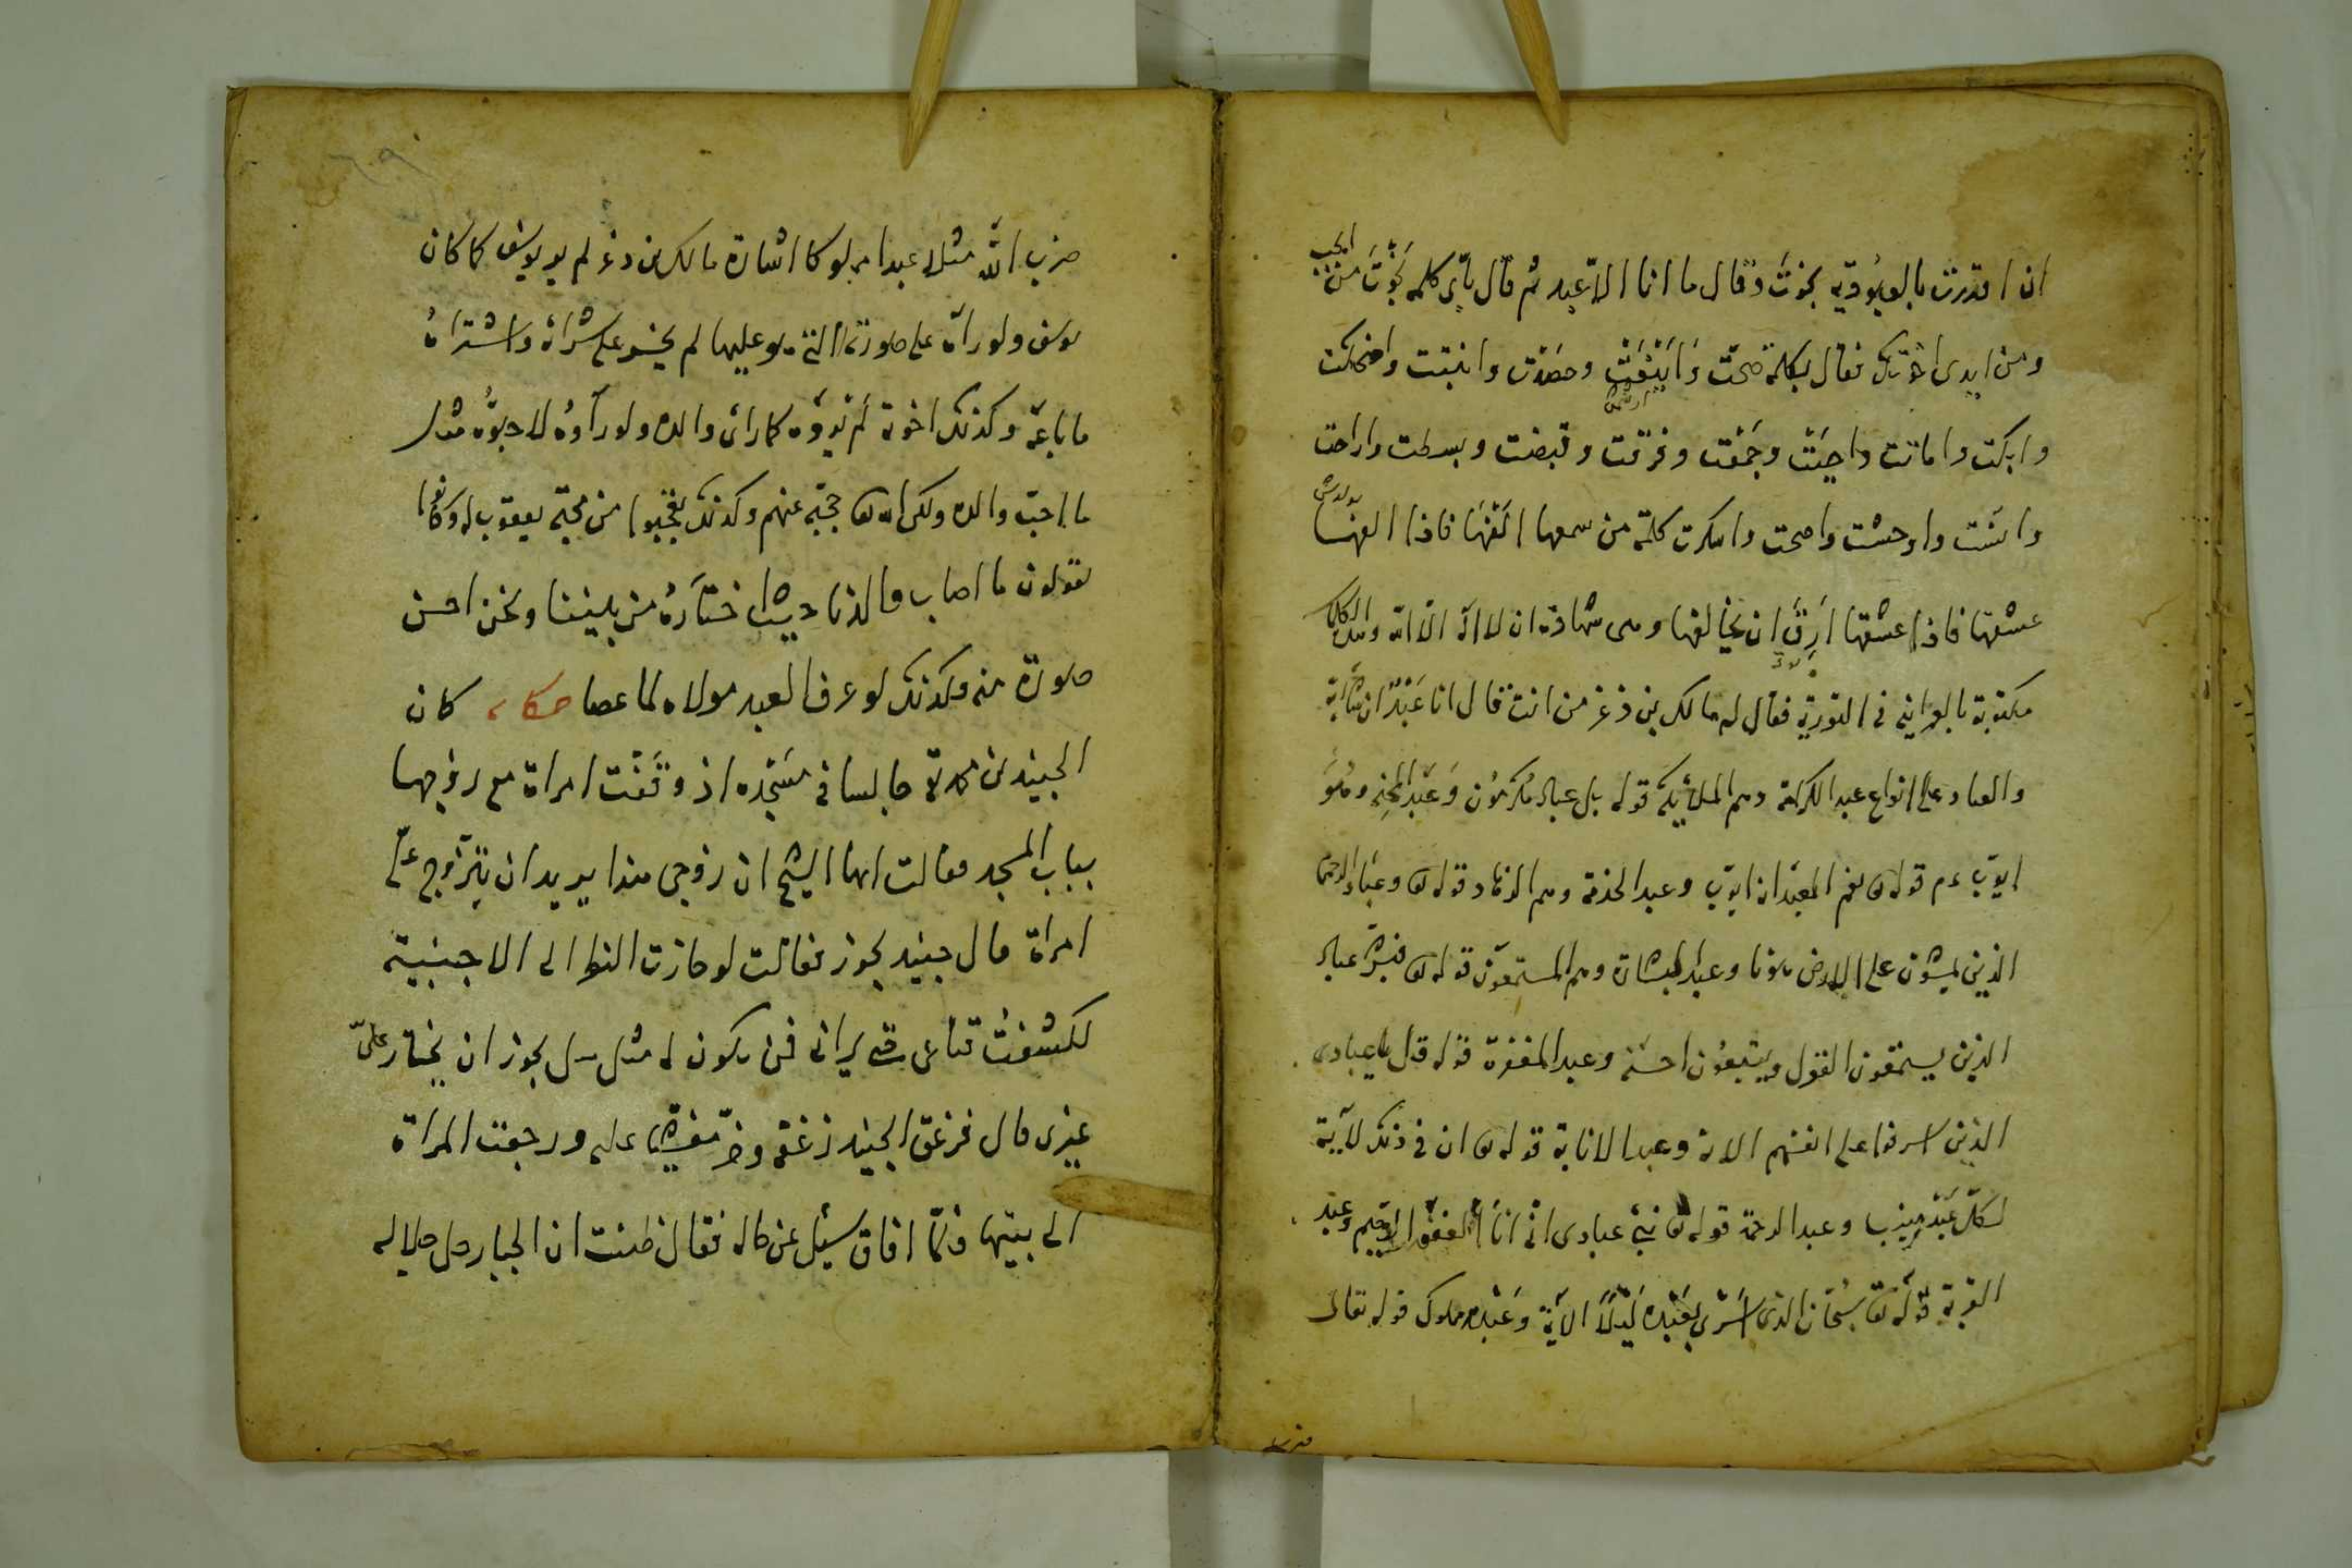 ان اقررت بالعبودية نجوت وقال ما انا الا عبد ثم قال بأي كلمة نجوت من الجب
ومن ايدى اخوتك فقال بكلمة صحت وَاَيْنَعَتْ وحصدت وانبتت واضحكت
وابكت واماتت واحيَتْ وجَمَعَت وفرقت وقبضت وبسطت واراحت
وانست واوحشت واصحت واسكرت كلمة من سمعها اَلِفَهَا فاذا الفها
عشقها فاذا عشقها اَرِقَ ان يخالفها وهى شهادة ان لا اله الا الله وتلك الكلمة
مكتوبة بالعبرانية فى التورية فقال له مالك بن ذغر من انت قال انا عَبْدٌ
والعباد على انواع عبد الكرامة وهم الملائكة قوله بل عباد مُكْرَمُون وَعَبْد المحنة وهُوَ
ايوب عم قوله تع نعم العبد انه اواب وعبد الخدمة وهم الزهاد قوله تع وعباد الرحمن
الذين يمشون على الارض هونا وعبد البشارة وهم المستمعون قوله تع فبشر عباد
الذين يستمعون القول ويتبعون احسنه وعبد المغفرة قوله قل يا عبادى
الذين اسرفوا على انفسهم الاية وعبد الانابة قوله تع ان فى ذلك لآية
لكل عَبْدٍ منيب وعبد الرحمة قوله تع نبئ عبادى انى انا الغفور الرحيم وعبد
القربة قوله تع سُبْحَان الذى اَسْرى بِعَبْدِه لَيْلاً الآية وَعَبْد مملوك قوله تعالى
ضرب
ضرب الله مثلا عبدا مملوكا اشارة مالك بن ذغر لم ير يوسف كما كان
يوسف ولو رآه على صورته التى هو عليها لم يجسر على شرائه واشتراهُ
ما باعه وكذلك اخوته لم يروه كما راى والده ولو رآوهُ لاحبوُّه مثل
ما احب والده ولكن الله تع حجبه عنهم وكذلك تعجبوا من محبة يعقوب له وكانوا
يقولون ما اصاب والدنا حيث اختاَرهُ من بيننا ونحن احسن
صورة منه وكذلك لو عرف العبد مولاه لما عصا حكاية كان
الجنيد بن محمد جالسا فى مسجده اذ وقفت امراة مع زوجها
بباب المسجد وقالت ايها الشيخ ان زوجى هذا يريد ان يتزوج علىّ
امراة قال جنيد يجوز فقالت لو جازت النظر الى الاجنبية
لكشفت قناعى حتى يرانى فمن يكون له مثلى هل يجوز ان يختار علىّ
غيرى قال فزعق الجنيد زعقة وخرّ مغشيا عليه ورجعت المراة
الى بيتها فلمّا افاق سئل عن حاله فقال ظننت ان الجبار جل جلاله